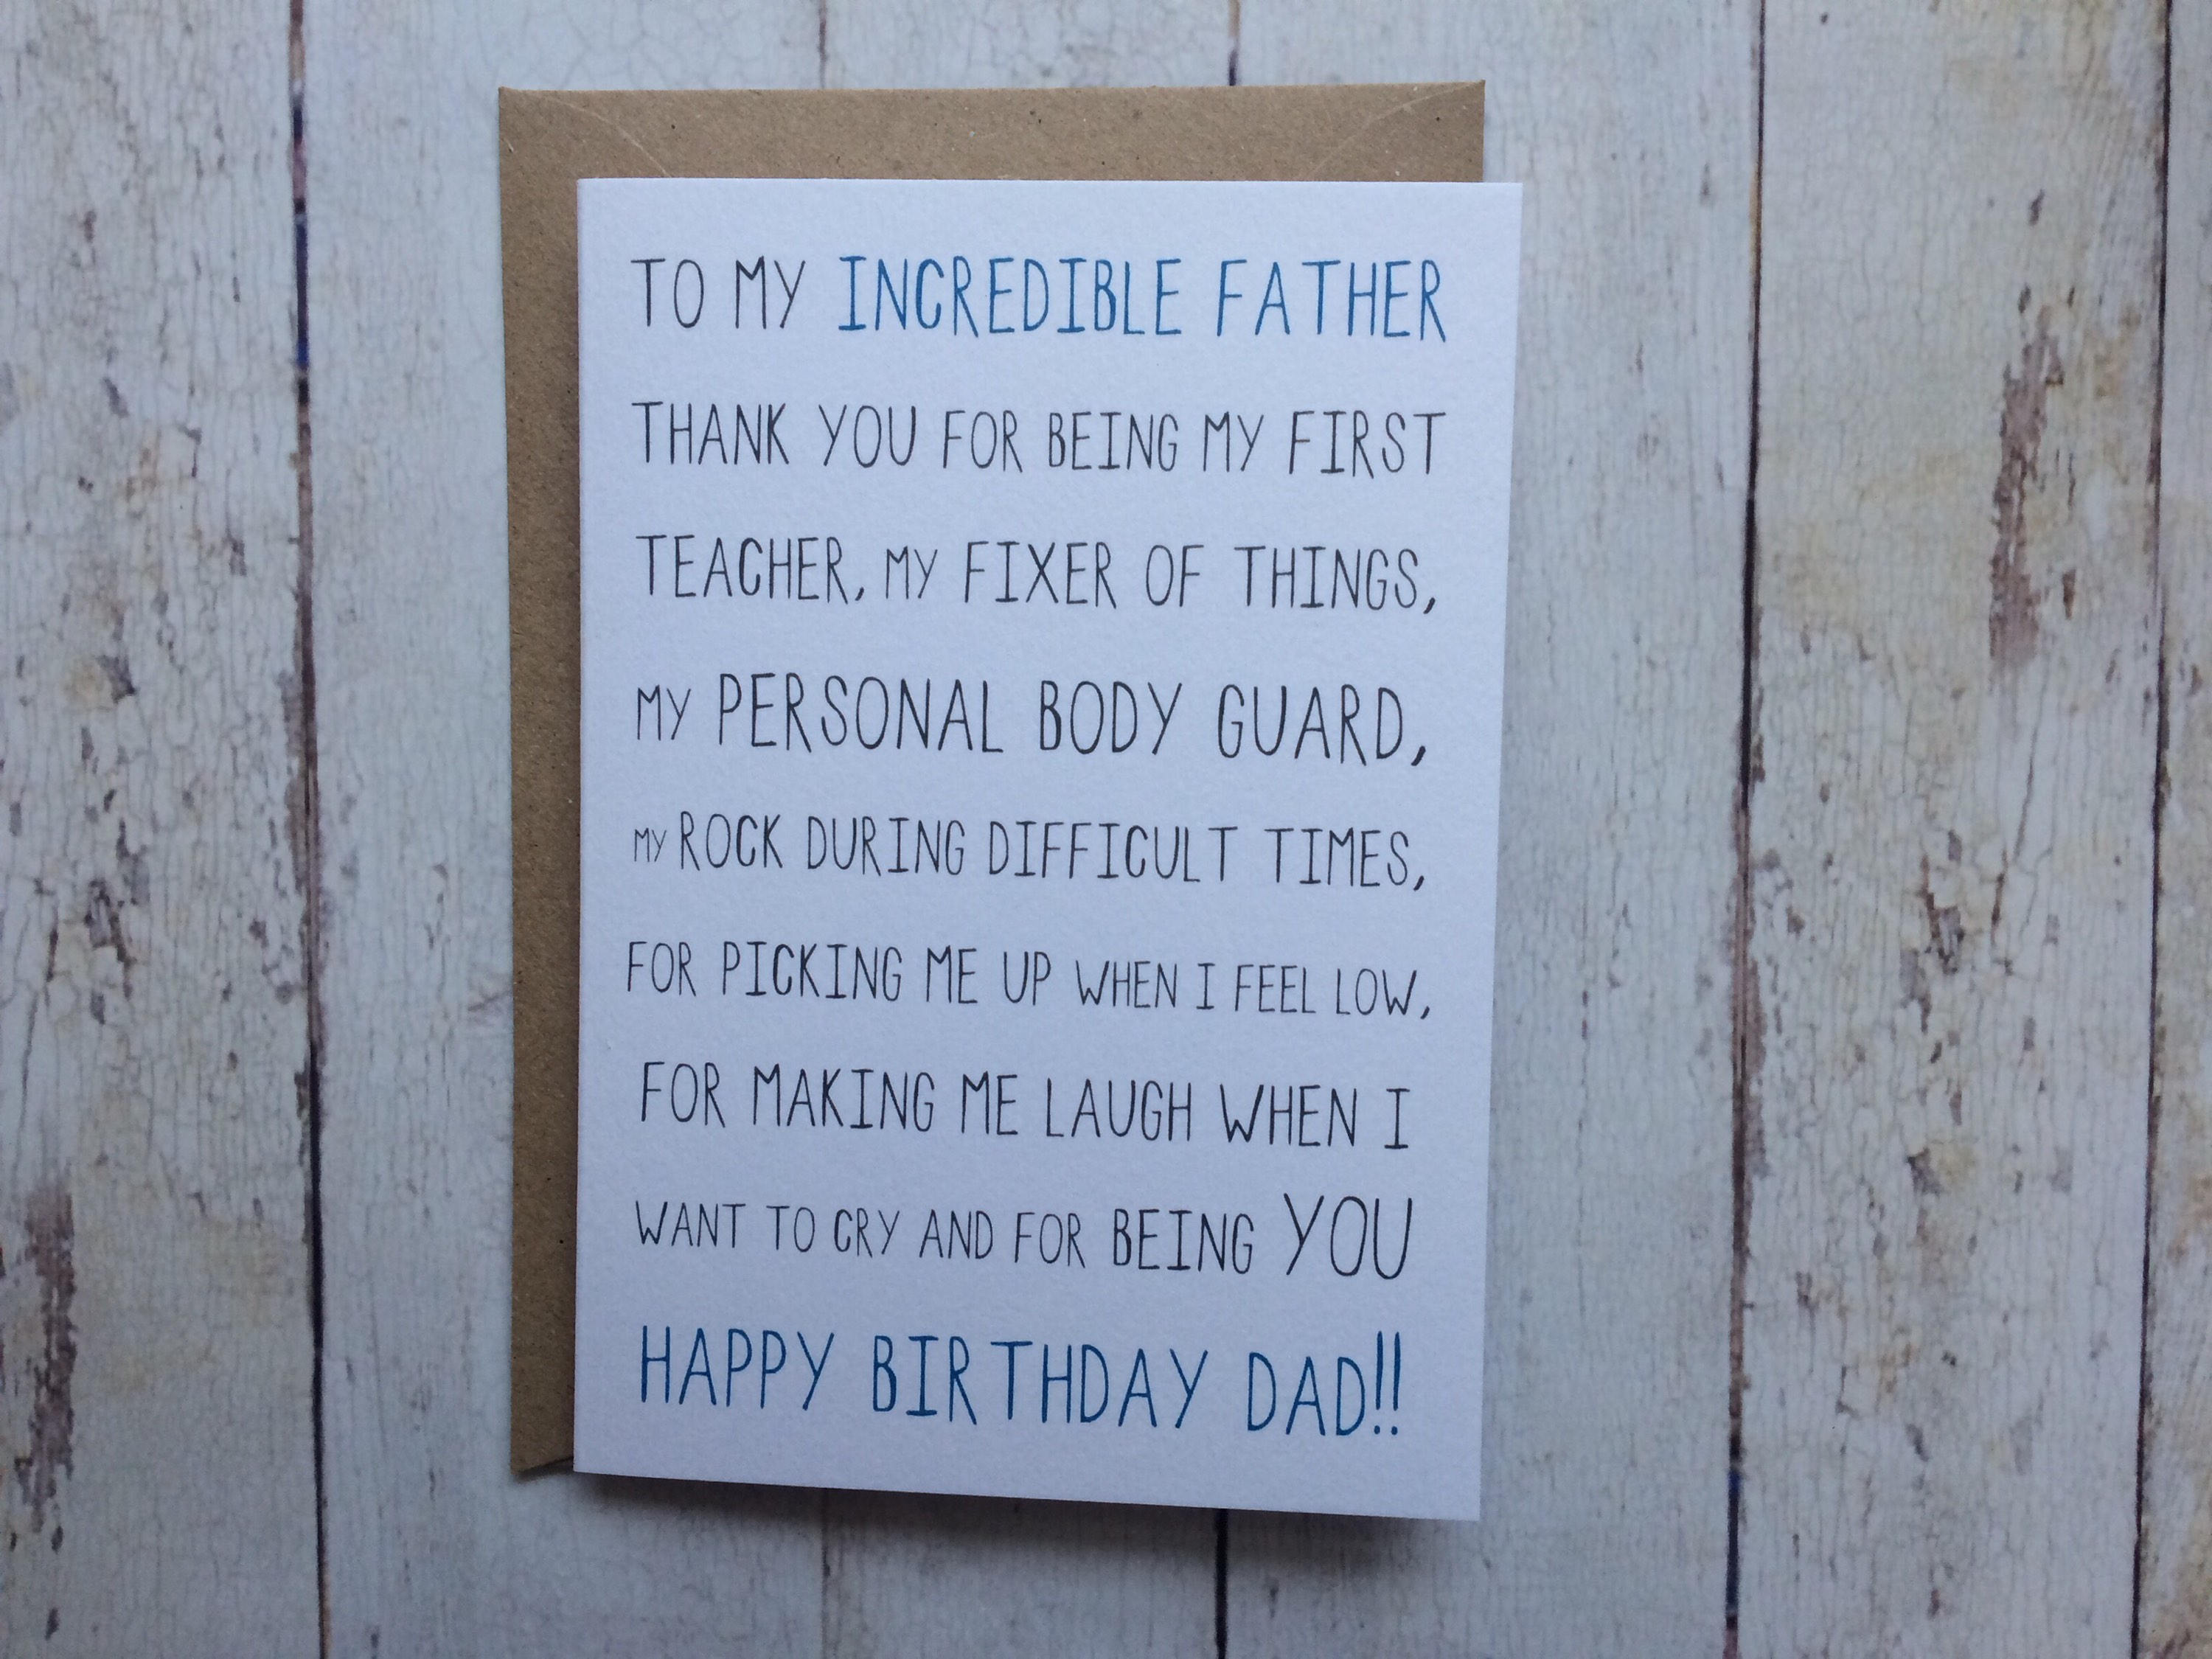 TO MY INCREDIBLE FATHER
THANK YOU FOR BEING MY FIRST
TEACHER, MY FIXER OF THINGS,
MY PERSONAL BODY GUARD,
MY ROCK DURING DIFFICULT TIMES,
FOR PICKING ME UP WHEN I FEEL LOW,
FOR MAKING ME LAUGH WHEN I
WANT TO CRY AND FOR BEING YOU
HAPPY BIRTHDAY DAD!!